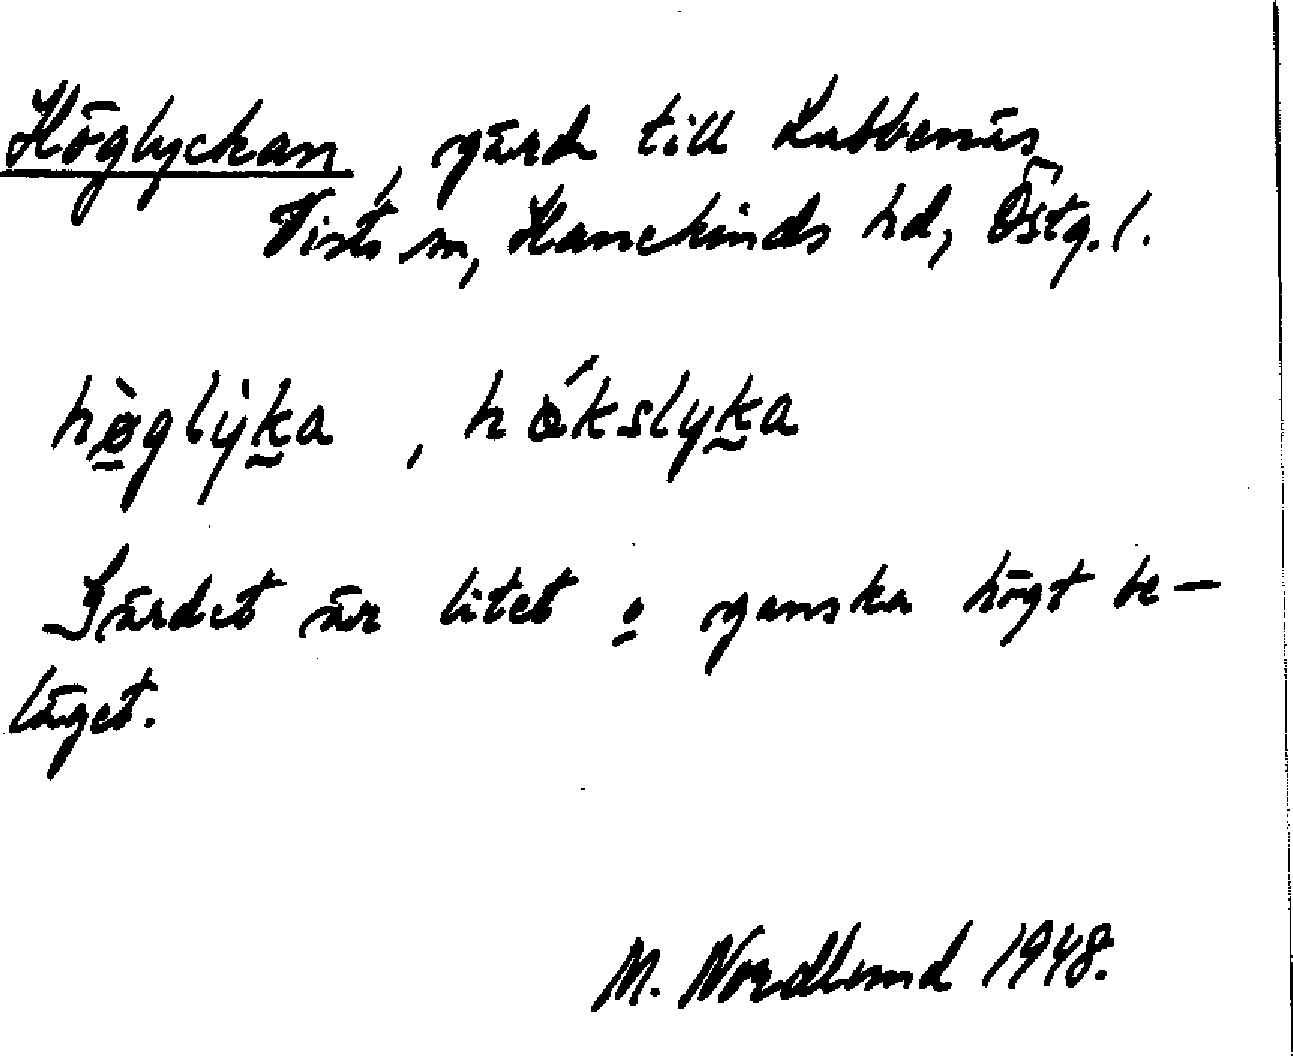 Höglyckan, gärde till Lubbenäs
Vists sn, Hanekinds hd, Östg. l.
hø̀glỳka, hǿkslyka
Gärdet är litet o ganska högt be-
läget.
M. Nordlund 1948.